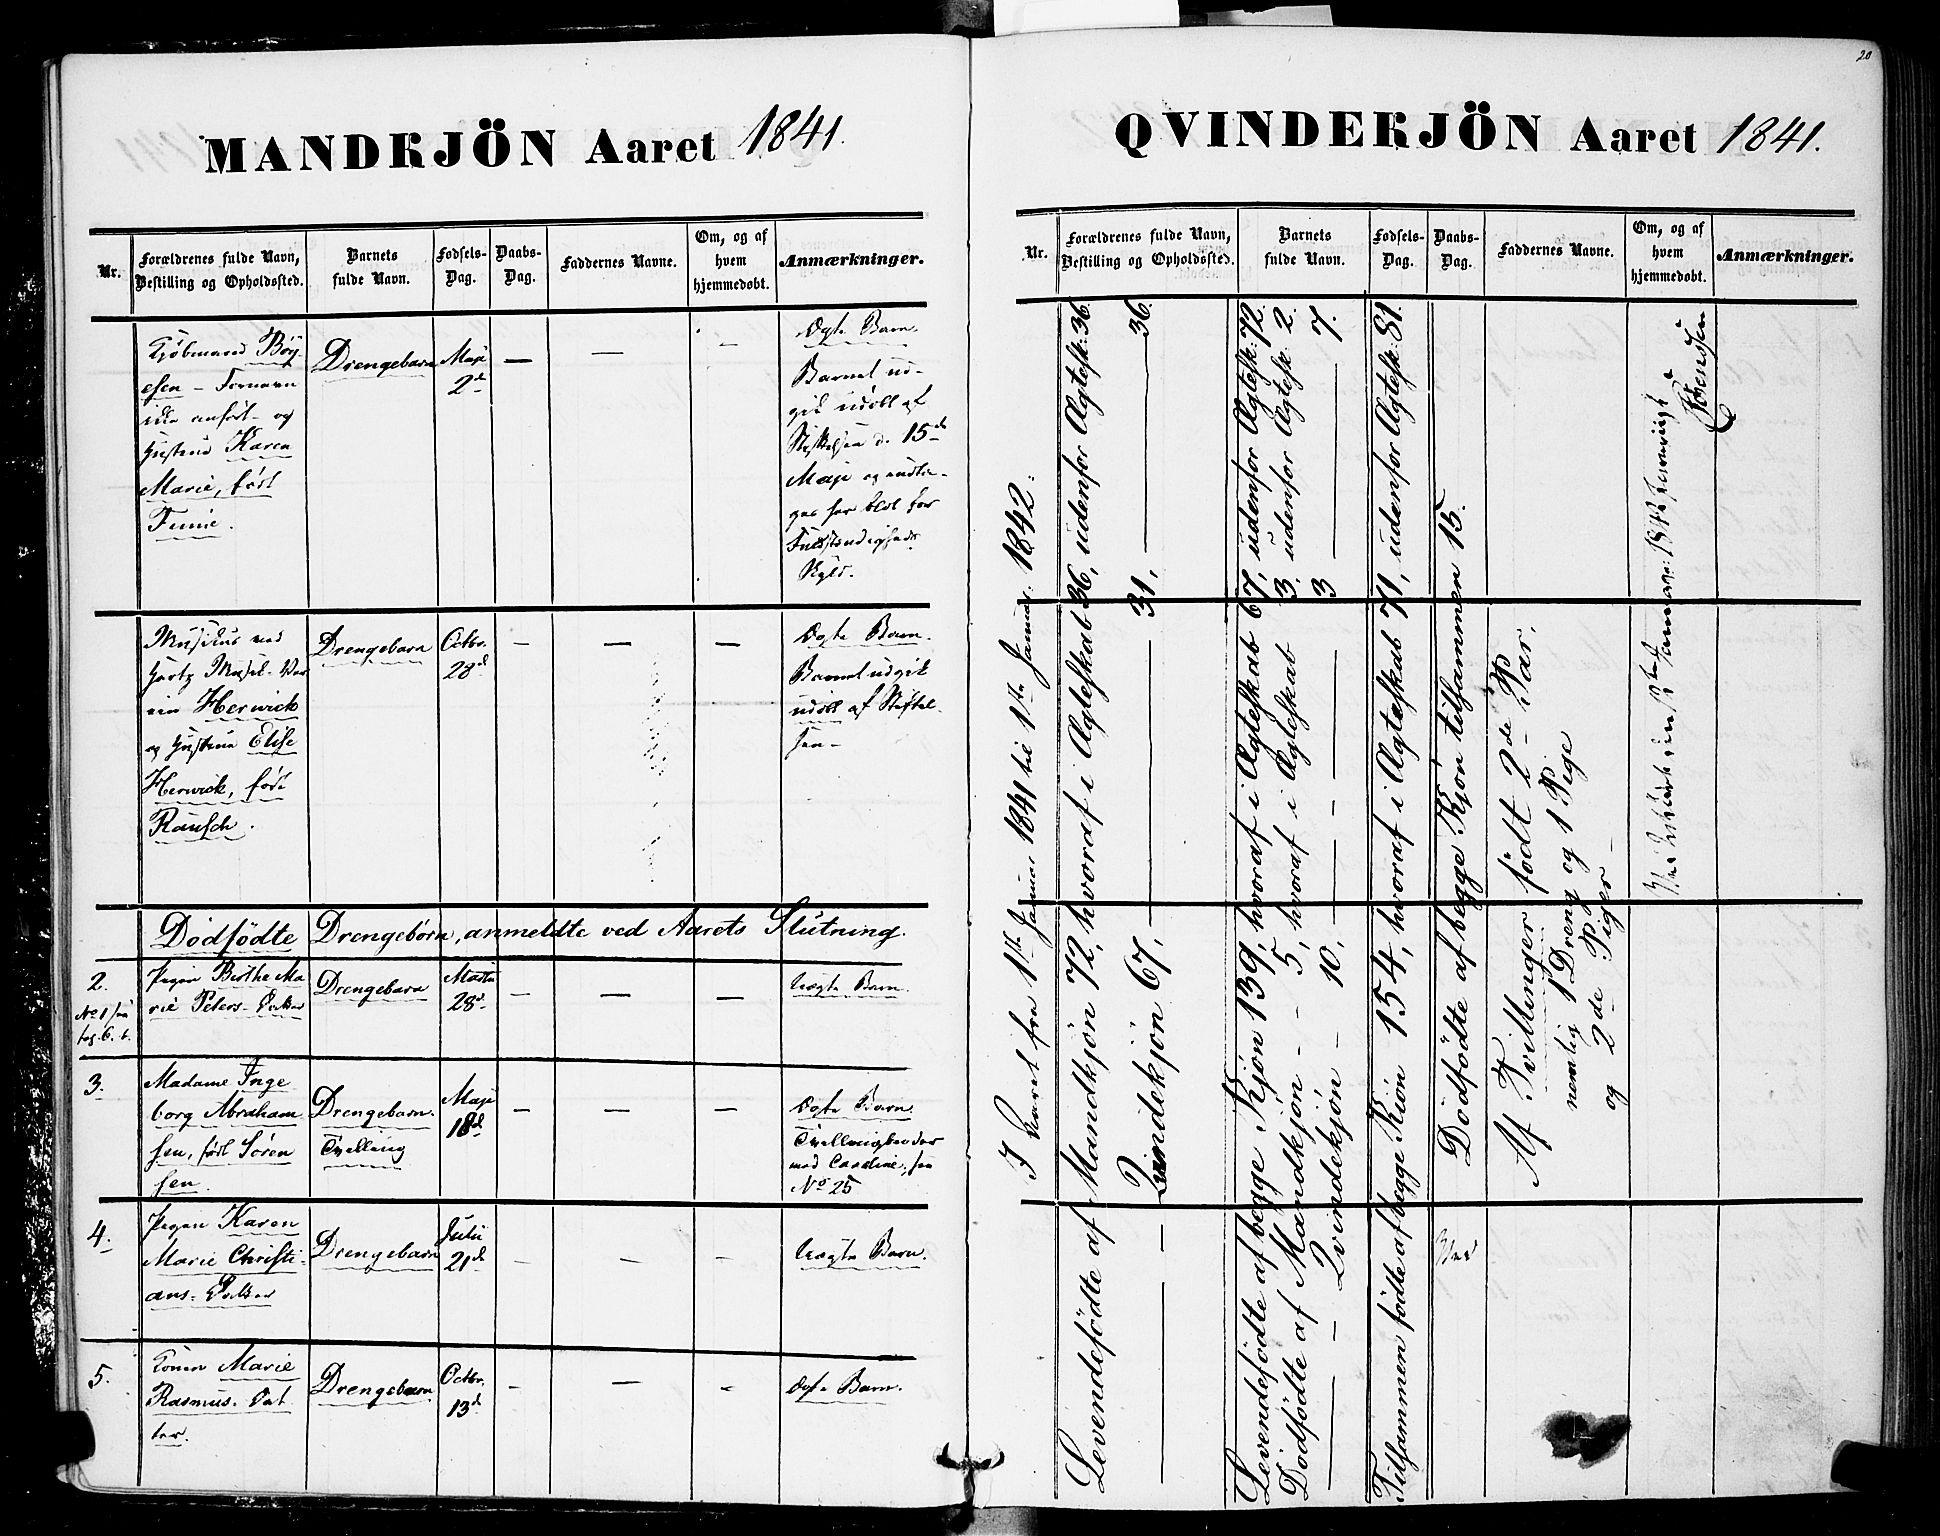 20
MANDKJÖN Aaret 1841.
Nr.
Forældrenes fulde Navn,
Bestilling og Opholdssted.
Barnets
fulde Navn.
Fødsels-
Dag.
Daabs-
Dag.
Faddernes Navne.
Om, og af
hvem
hjemmedøbt.
Anmærkninger.
Kjøbmand Böy
esen – Fornavn
ikke anført – og
Hustrue Karen
Marie, født
Drengebarn
Maji
2d
—
—
—
Ægte Barn.
Barnet ud-
gik udøbt af
Stiftelsen d. 15de
Maji og
Skyld.
Musikus ved
Musik-
Herwick
og Hustrue Elise
Herwick, født
Rausch.
Drengebarn
Octbr.
28d
—
—
—
Ægte Barn.
Barnet udgik
udøbt af Stiftel-
sen –
Dödfödte Drengebörn, anmeldte ved Aarets Slutning.
2.
No 1 see
pag. 6. b.
Pigen Birthe Ma
rie Peters-Datter
Drengebarn
Marts
28d
—
—
—
Uægte Barn.
3.
Madame Inge
borg Abraham
sen, født Sören
sen.
Drengebarn.
Tvelling
Maji
18d
—
—
—
Ægte Barn.
Tvellingbroder
med Caroline, see
No 25
4.
Pigen Karen
Marie Christi-
ans-Datter
Drengebarn
Julii
21d
—
—
—
Uægte Barn.
5.
Konen Marie
Rasmus-Dat
ter.
Drengebarn
Octbr.
13d
—
—
—
Ægte Barn.
QVINDEKJÖN Aaret 1841.
Nr.
Forældrenes fulde Navn,
Bestilling og Opholdssted.
Barnets
fulde Navn.
Fødsels-
Dag.
Daabs-
Dag.
Faddernes Navne.
Om, og af
hvem
hjemmedøbt.
Anmærkninger.
I Aaret fra 1ste Januar 1841 til 1ste Januar 1842:
Levendefödte af Mandkjön 72, hvoraf i Ægteskab 36, udenfor Ægtesk: 36.
— — Qvindekjön 67, — 31, — 36.
Levendefödte af begge Kjön 139, hvoraf i Ægteskab 67, udenfor Ægtesk: 72.
Dödfödte af Mandkjön – – 5, hvoraf i Ægteskab 3, udenfor Ægtesk: 2.
— – Qvindekjön – – 10, — – – 3 — 7.
Tilsammen födte af begge Kjön 154, hvoraf i Ægteskab 71, udenfor Ægtesk: 81.
Dödfödte af begge Kjön tilsammen 15.
Af Tvillinger födt 2de Par,
nemlig 1 Dreng og 1 Pige
og 2de Piger –